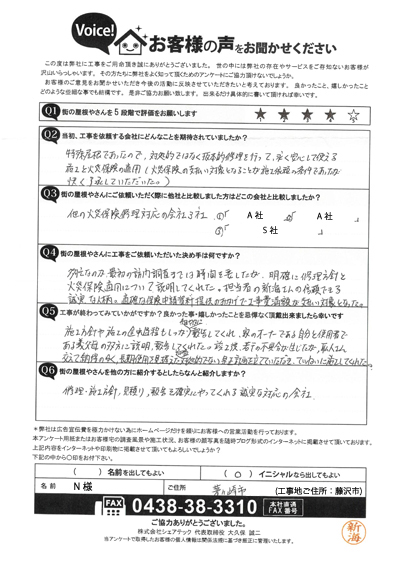 Voice!
お客様の声をお聞かせください
この度は弊社に工事をご用命頂き誠にありがとうございました。世の中には弊社の存在やサービスをご存知ないお客様が
沢山いらっしゃいます。その方たちに弊社をよく知って頂くためのアンケートにご協力頂けないでしょうか。
お客様のご意見をお聞かせいただき今後の活動に反映させていただきたいと考えております。良かったこと、嬉しかったこと
どのような些細な事でも結構です。是非ご協力お願い致します。出来るだけ具体的に書いて頂ければ幸いです。
Q1 街の屋根やさんを5段階で評価をお願いします ★ ★ ★ ★ ☆
Q2 当初、工事を依頼する会社にどんなことを期待されていましたか?
特殊屋根であったので、対処的ではなく抜本的修理を行って、永く安心して使える
施工と火災保険の適用(火災保険の支払い対象となることが施工依頼の条件であった
快く了承していただいた。)
Q3 街の屋根やさんにご依頼いただく際に他社と比較しました方はどこの会社と比較しましたか?
他の火災保険修理対応の会社3社 A社 A社
S社
Q4 街の屋根やさんに工事をご依頼いただいた決め手は何ですか?
対応の力、最初の訪問調査までは時間を要したが、明確に修理方針と
火災保険適用について説明してくれた。担当者の新海さんの信頼できる
誠実な人柄。
Q5 工事が終わってみていかがですか?良かった事・嬉しかったことを忌憚なく頂戴出来ましたら幸いです
施工方針や施工の途中経過もしっかり報告してくれ、家のオーナーである自分と使用者で
ある義父母の双方に説明、報告してくれた。
Q6 街の屋根やさんを他の方に紹介するとしたらなんと紹介しますか?
修理・施工方針、見積り、報告を確実にやってくれる誠実な対応の会社。
*弊社は広告宣伝費を極力かけない為にホームページだけを頼りにお客様への営業活動を行っております。
本アンケート用紙またはお客様宅の調査風景や施工状況、お客様の顔写真を随時ブログ形式のインターネットに掲載させて頂いております。
上記内容をインターネットや印刷物に掲載させて頂いてもよろしいでしょうか?
下記の中から○印をお付け下さい。
( )名前を出してもよい ( ○ )イニシャルなら出してもよい
名前 N様 ご住所 茅ヶ崎市 (工事地ご住所:藤沢市)
FAX 0438-38-3310 本社直通 FAX番号
ご協力ありがとうございました。
株式会社シェアテック 代表取締役 大久保 誠二
当アンケートで取得したお客様の個人情報は関係法規に基づき厳正に管理いたします。
新海